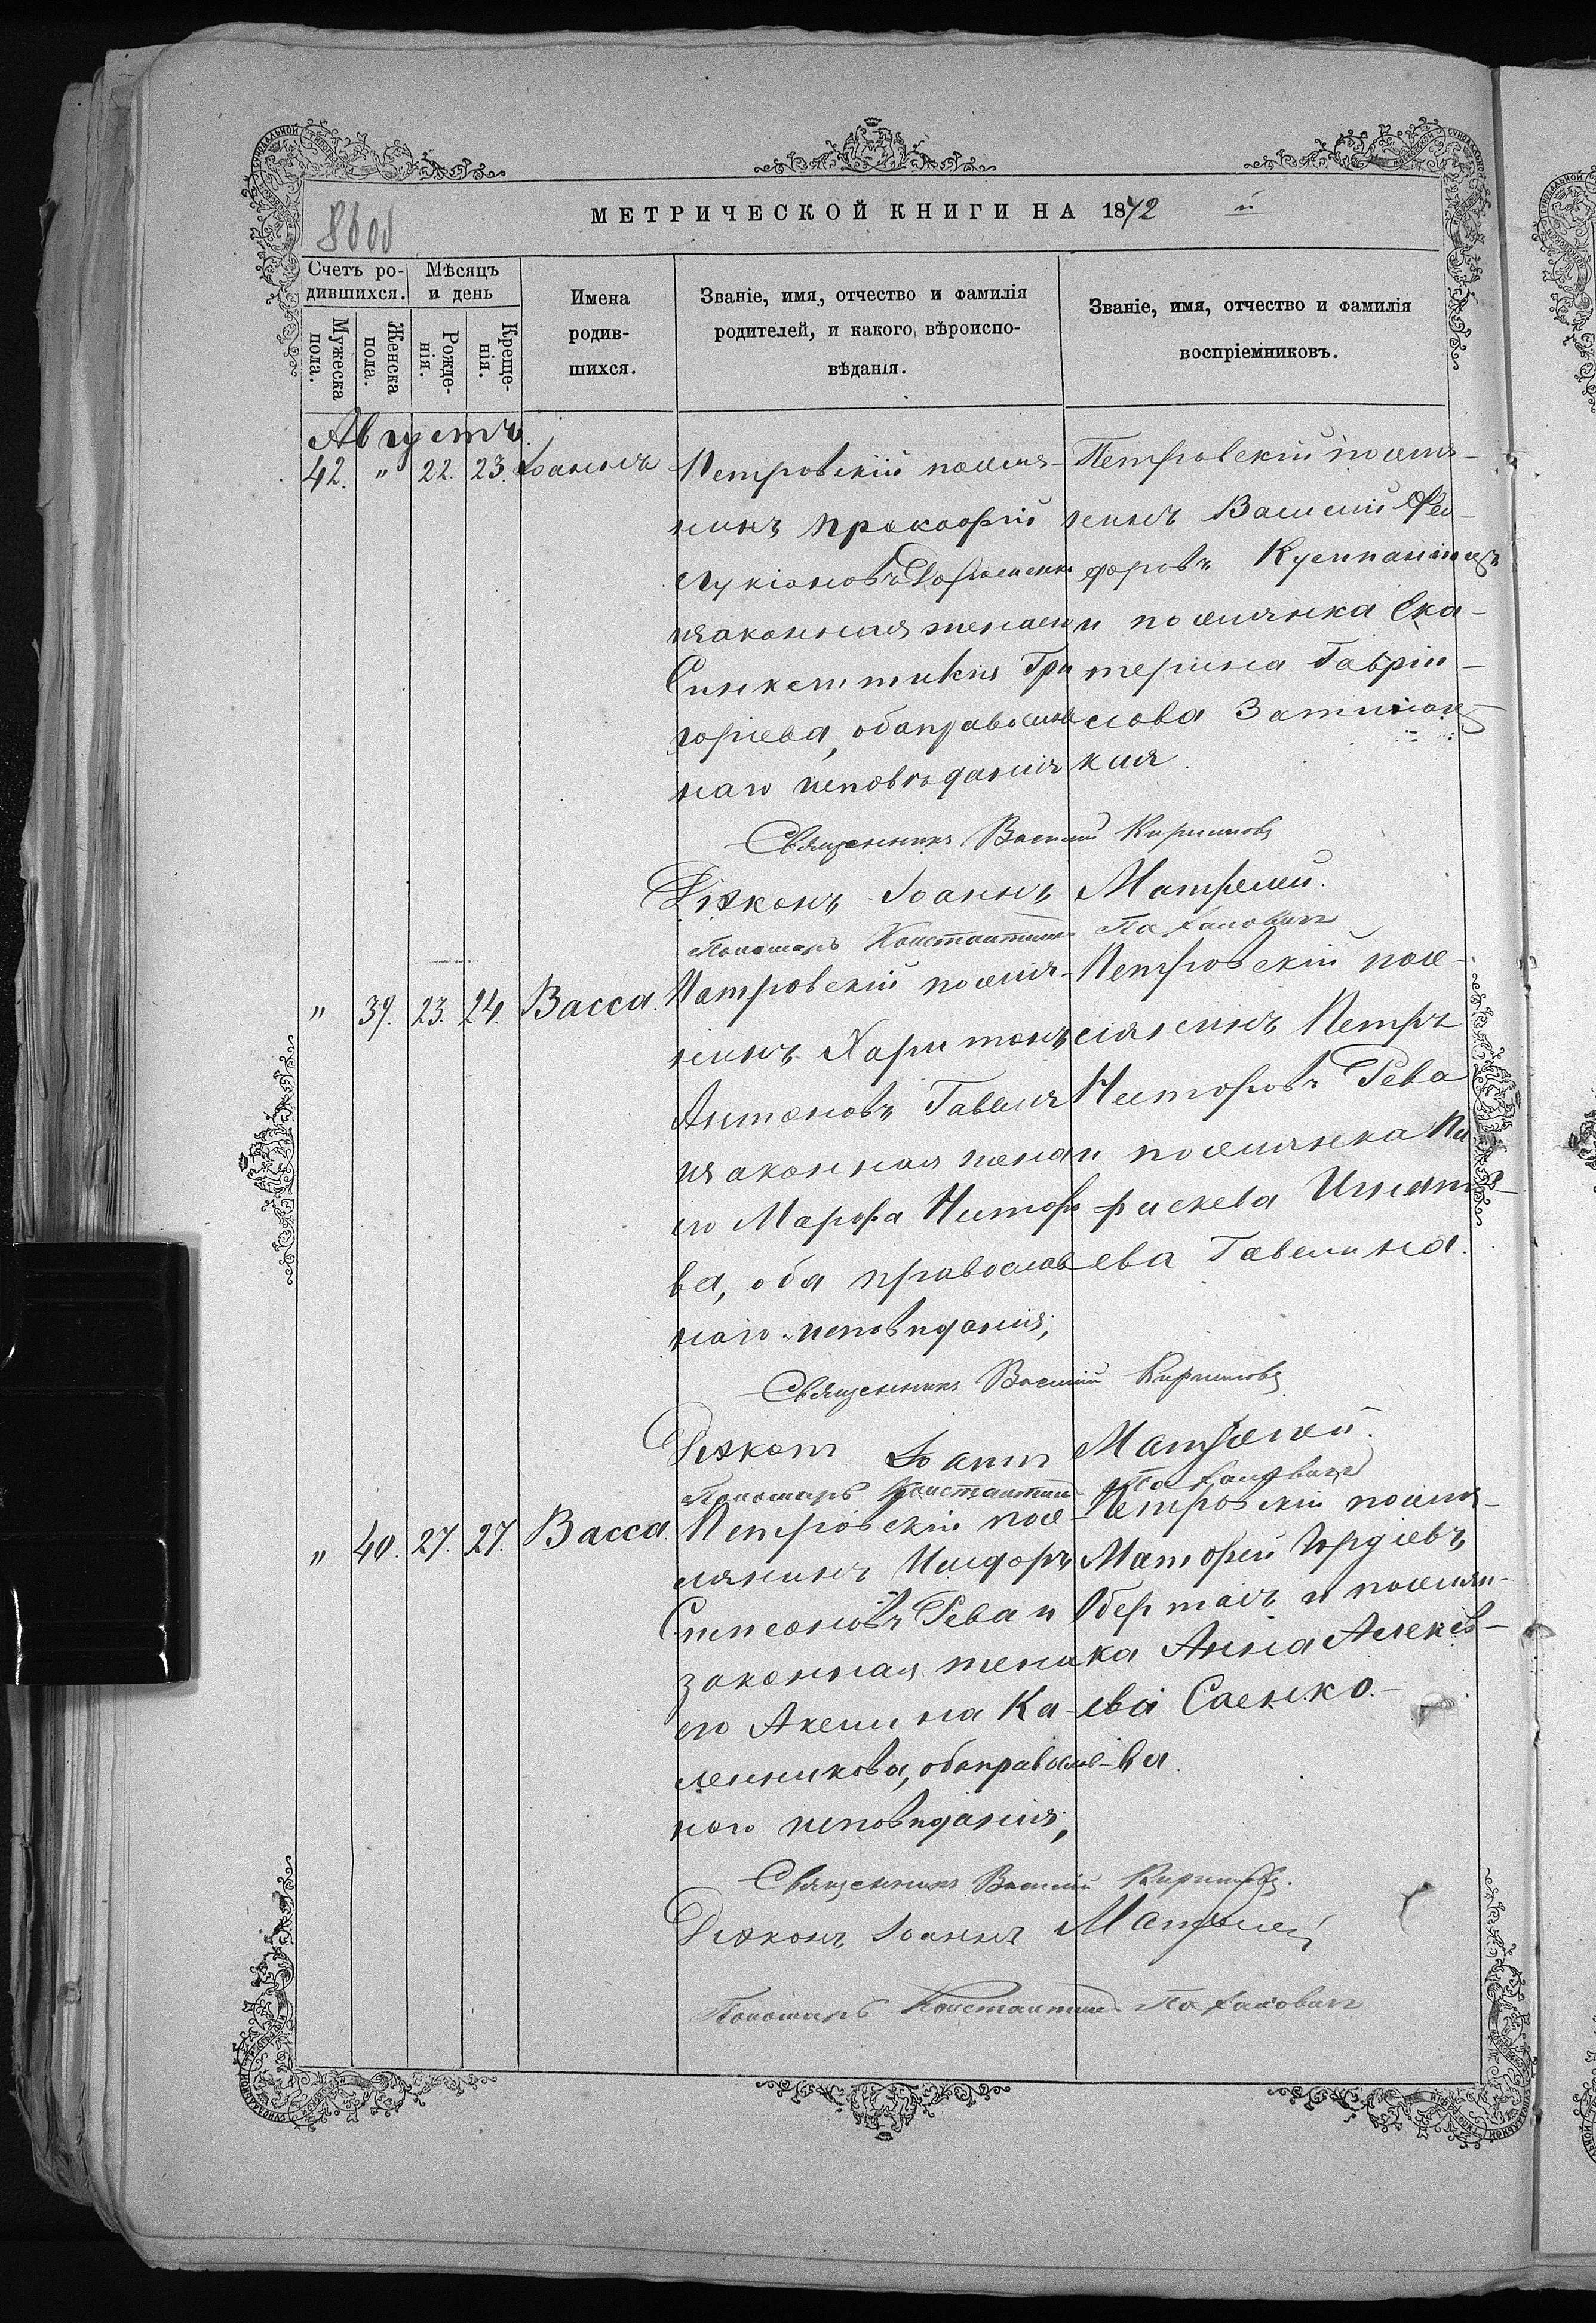 МЕТРИЧЕСКОЙ КНИГИ НА 1872 й
Счетъ ро-
дившихся.
Мужеска пола.
Женска пола.
Мѣсяцъ
и день
Рожде-
нія.
Креще-
нія.
Имена
родив-
шихся.
Званіе, имя, отчество и фамилія
родителей, и какого вѣроиспо-
вѣданія.
Званіе, имя, отчество и фамилія
воспріемниковъ.
Августъ.
42. " 22. 23. Іоаннъ
Петровскій поселя-
нинъ Прокофій
Лукіановъ
и законная жена его
Синклитикія Гри
горіева, оба православ
наго исповѣданія
Петровскій поселя-
нинъ Василій Фео-
форовъ
и поселянка Ека-
терина Гавріи-
лова
кая.
Священникъ Василій Кирилловъ
Діаконъ Іоаннъ
Пономарь Константинъ
" 39. 23. 24. Васса.
Петровскій поселя-
нинъ Харитонъ
Антоновъ Гавеля
и законная жена
его Марфа Нестеро
ва, оба православ
наго исповѣданія,
Петровскій посе-
лянинъ Петръ
Несторовъ Рева
и поселянка Па
раскева Игнатье-
ева Гавелина.
Священникъ Василій Кирилловъ
Діаконъ Іоаннъ
Пономарь Константинъ
" 40. 27. 27. Васса.
Петровскій посе-
лянинъ Исидоръ
Симеоновъ Рева и
законная жена
его Акелина Ка-
ленникова, оба православ-
наго исповѣданія,
Петровскій поселя-
Матфей Гордіевъ
и поселян-
ка Анна Алексѣ-
ева Саенко.-
ва.
Священникъ Василій Кирилловъ.
Діаконъ Іоаннъ
Пономарь Константинъ